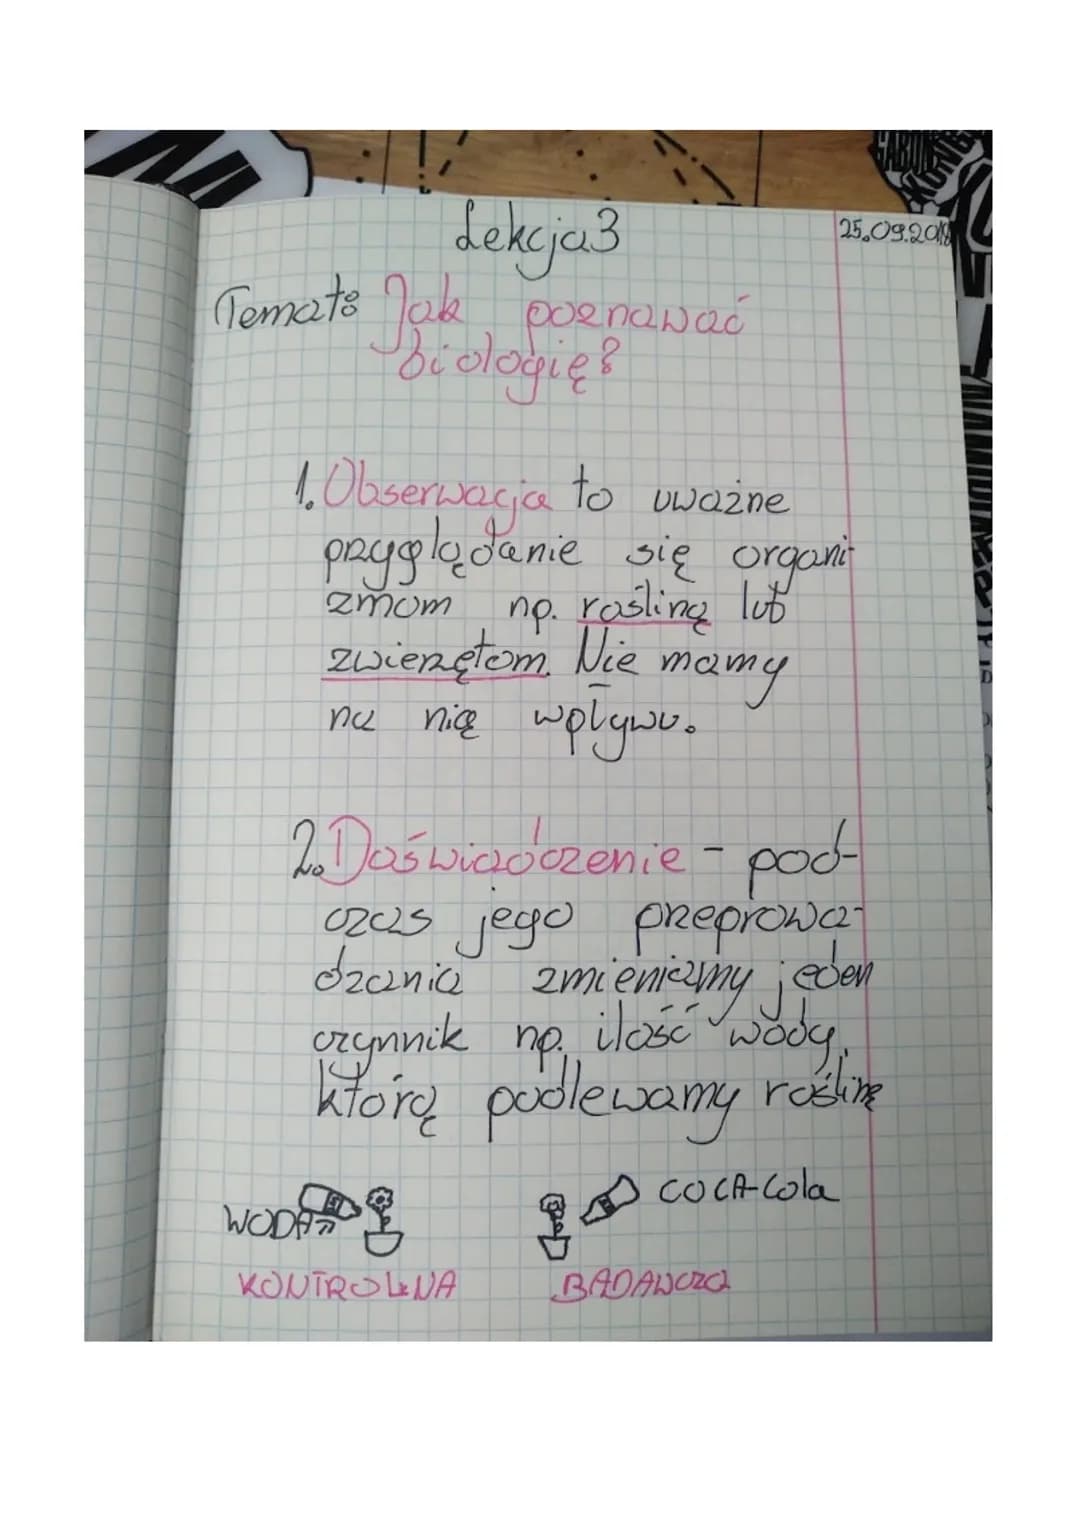 Lekcja 3
25.09.2018
Temat: Jak poznawać
biologię?
1. Obserwacja to uważne
przyglądanie się organi-
zmom np. rośliną lub
zwierzętom. Nie mamy
na nią wpływu.
2. Doświadczenie - pod-
czas jego przeprowa-
dzania zmieniamy jeden
czynnik np. ilość wody,
którą podlewamy roślinę
WODA
COCA-Cola
KONTROLNA
BADAWCZA